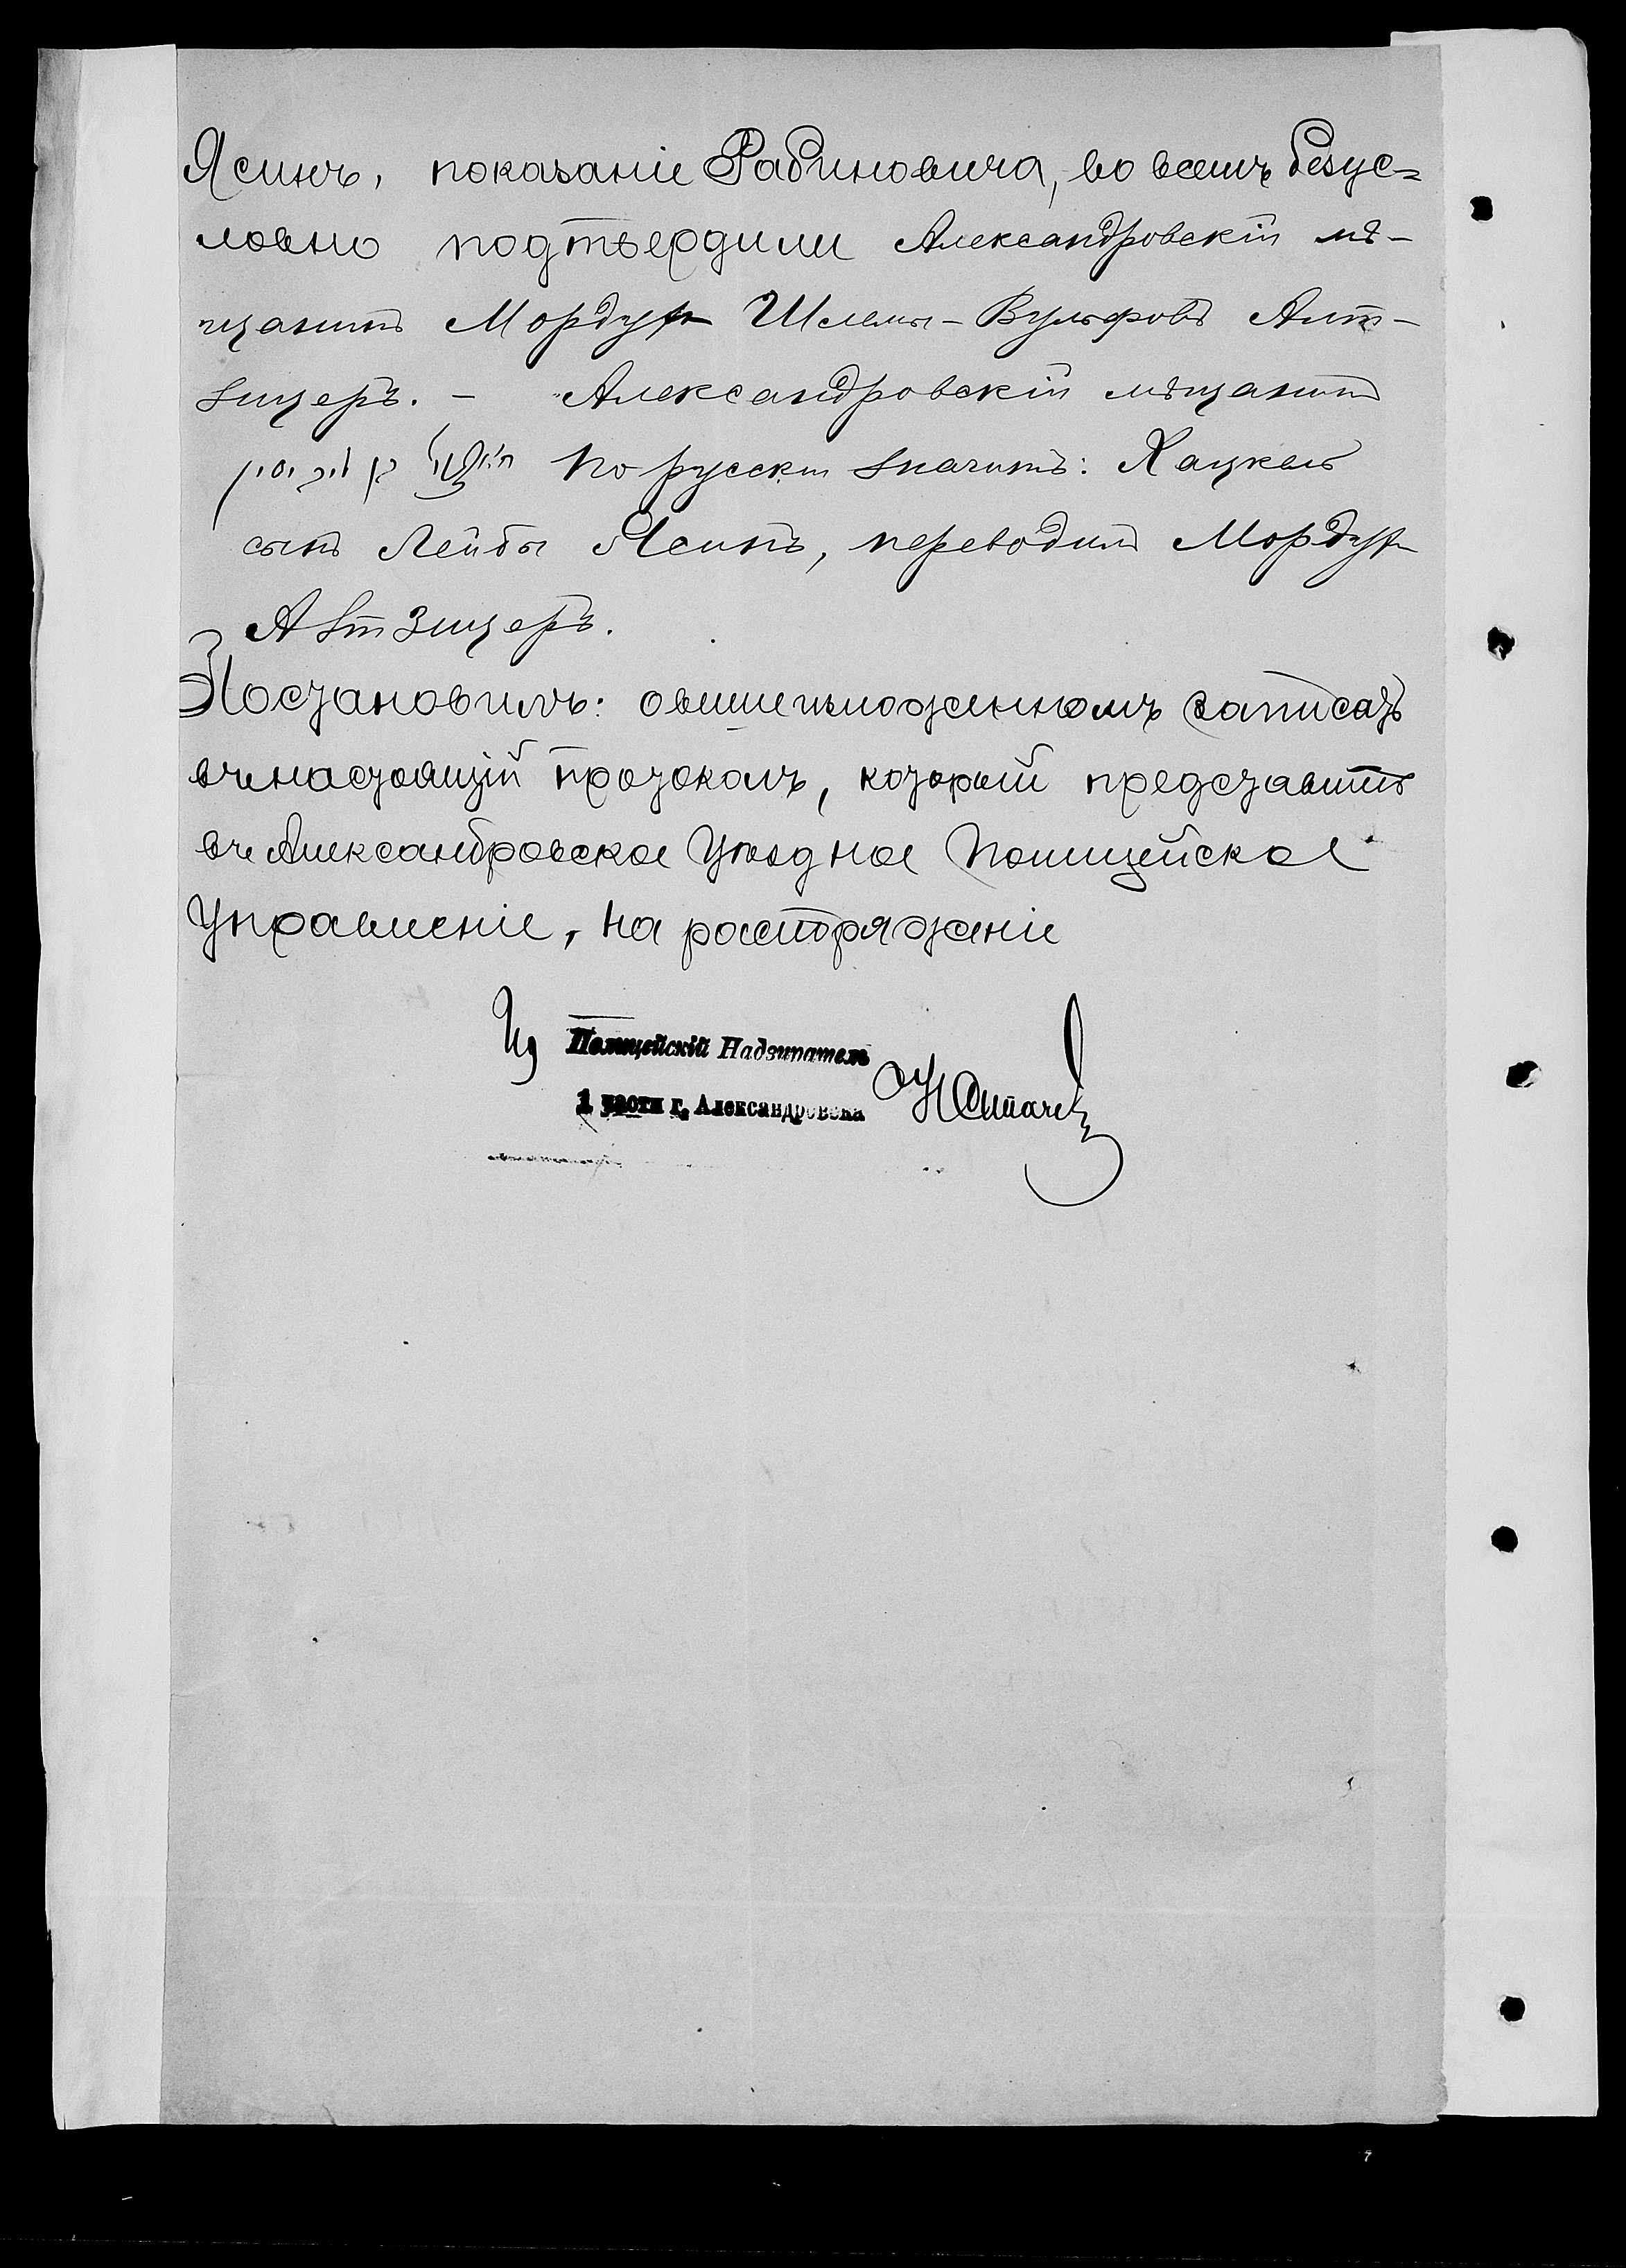 Ясинъ, показаніе Рабиновича, во всемъ безус=
ловно подтвердили Александровскій мѣ-
щанинъ Мордух Шлемы-Вульфовъ Алт-
зицеръ. - Александровскій мѣщанинъ
חצקל בן לייב יאסין По русски значитъ: Хацкель
сынъ Лейбы Ясинъ, переводилъ Мордух
Алтзицеръ.
Постановилъ: овышеизложенномъ записать
въ настоящій протоколъ, который представить
въ Александровское Уѣздное Полицейское
Управленіе, на распоряженіе
Ид Полицейскій Надзиратель
1 части г. Александровска